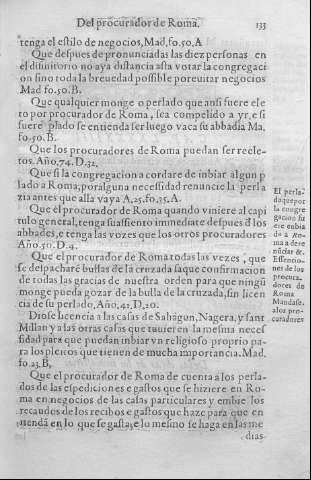 Del procurador de Roma.
133
tenga el estilo de negocios, Mad, fo. 50, A
Que despues de pronunciadas las diez personas en
el difinitorio no aya distancia asta votar la congregaci
on sino toda la breuedad possible por euitar negocios
Mad fo. 50. B.
Que qualquier monge o perlado que ansi fuere ele
to por procurador de Roma, sea compelido a yr, e si
fuere plado se entienda ser luego vaca su abbadia Ma,
fo. 50. B.
Que los procuradores de Roma puedan ser reele-
tos. Año, 74. D. 32,
Que si la congregacion a cordare de inbiar algun p
lado a Roma, por alguna necessidad renuncie la perla
zia antes que alla vaya A, 25. fo. 35. A.
Que el procurador de Roma quando viniere al capi
tulo general, tenga su assiento immediate despues d los
abbades, e tenga las vozes que los otros procuradores
Año. 50. D. 4.
Que el procurador de Roma todas las vezes, que
se despachare bullas de la cruzada saque confirmacion
de todas las gracias de nuestra orden para que ningũ
monge pueda gozar de la bulla de la cruzada, sin licen
cia de su perlado, Año, 45, D, 20:
Diose licencia a las casas de Sahagun, Nagera, y sant
Millan y a las otras casas que tuuieren la mesma neces
sidad para que puedan inbiar vn religioso proprio pa-
ra los pleitos que tienen de mucha importancia. Mad.
fo. 23. B,
Que el procurador de Roma de cuenta a los perla-
dos de las espediciones e gastos que se hiziere en Ro-
ma en negocios de las casas particulares y embie los
recaudos de los recibos e gastos que haze para que en
tienda en lo que se gasta; e lo mesmo se haga en las me
dias
El perla-
do que por
la congre
gacion fu
ere enbia
do a Ro-
ma a de re
nũciar &.
Essencio-
nes de los
procura-
dores de
Roma
Mandase,
a los pro-
curadores